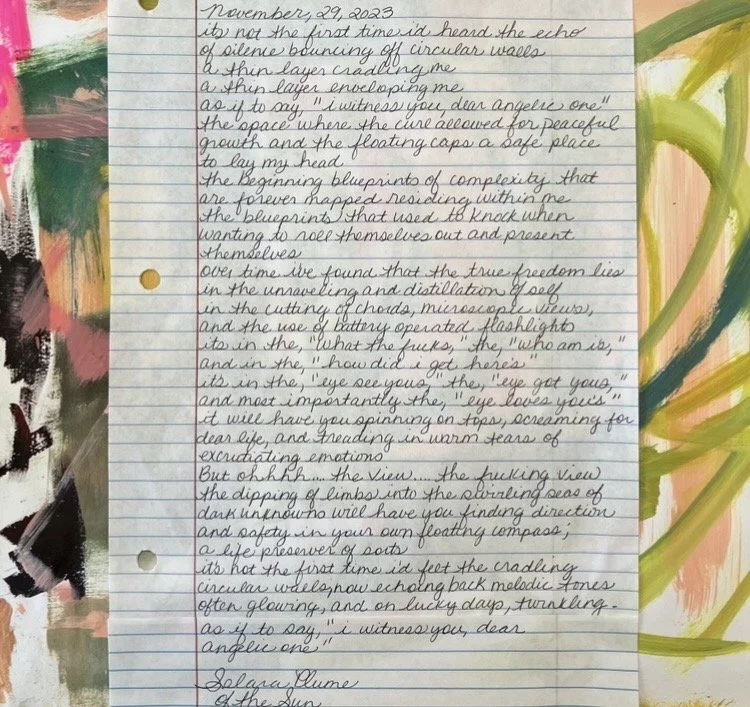 November, 29, 2023
its not the first time i'd heard the echo
of silence bouncing off circular walls
a thin layer cradling me
a thin layer enveloping me
as if to say, "i witness you, dear angelic one"
the space where the curl allowed for peaceful
growth and the floating caps a safe place
to lay my head
the Beginning blueprints of complexity that
are forever mapped residing within me
the blueprints that used to knock when
wanting to roll themselves out and present
themselves
over time ive found that the true freedom lies
in the unraveling and distillation of self
in the cutting of chords, microscopic views,
and the use of battery operated flashlights
its in the, "what the fucks," the, "who am is,"
and in the, "how did i get here's"
its in the, "eye see yous," the, "eye got yous,"
and most importantly the, "eye loves you's"
it will have you spinning on tops, screaming for
dear life, and treading in warm tears of
excrutiating emotions
But ohhhh.... the view.... the fucking view
the dipping of limbs into the swirling seas of
dark unknowns will have you finding direction
and safety in your own floating compass;
a life preserver of sorts
its not the first time i'd felt the cradling
circular walls, now echoing back melodic tones
often glowing, and on lucky days, twinkling.
as if to say, "i witness you, dear
angelic one"
Solara Plume
of the Sun